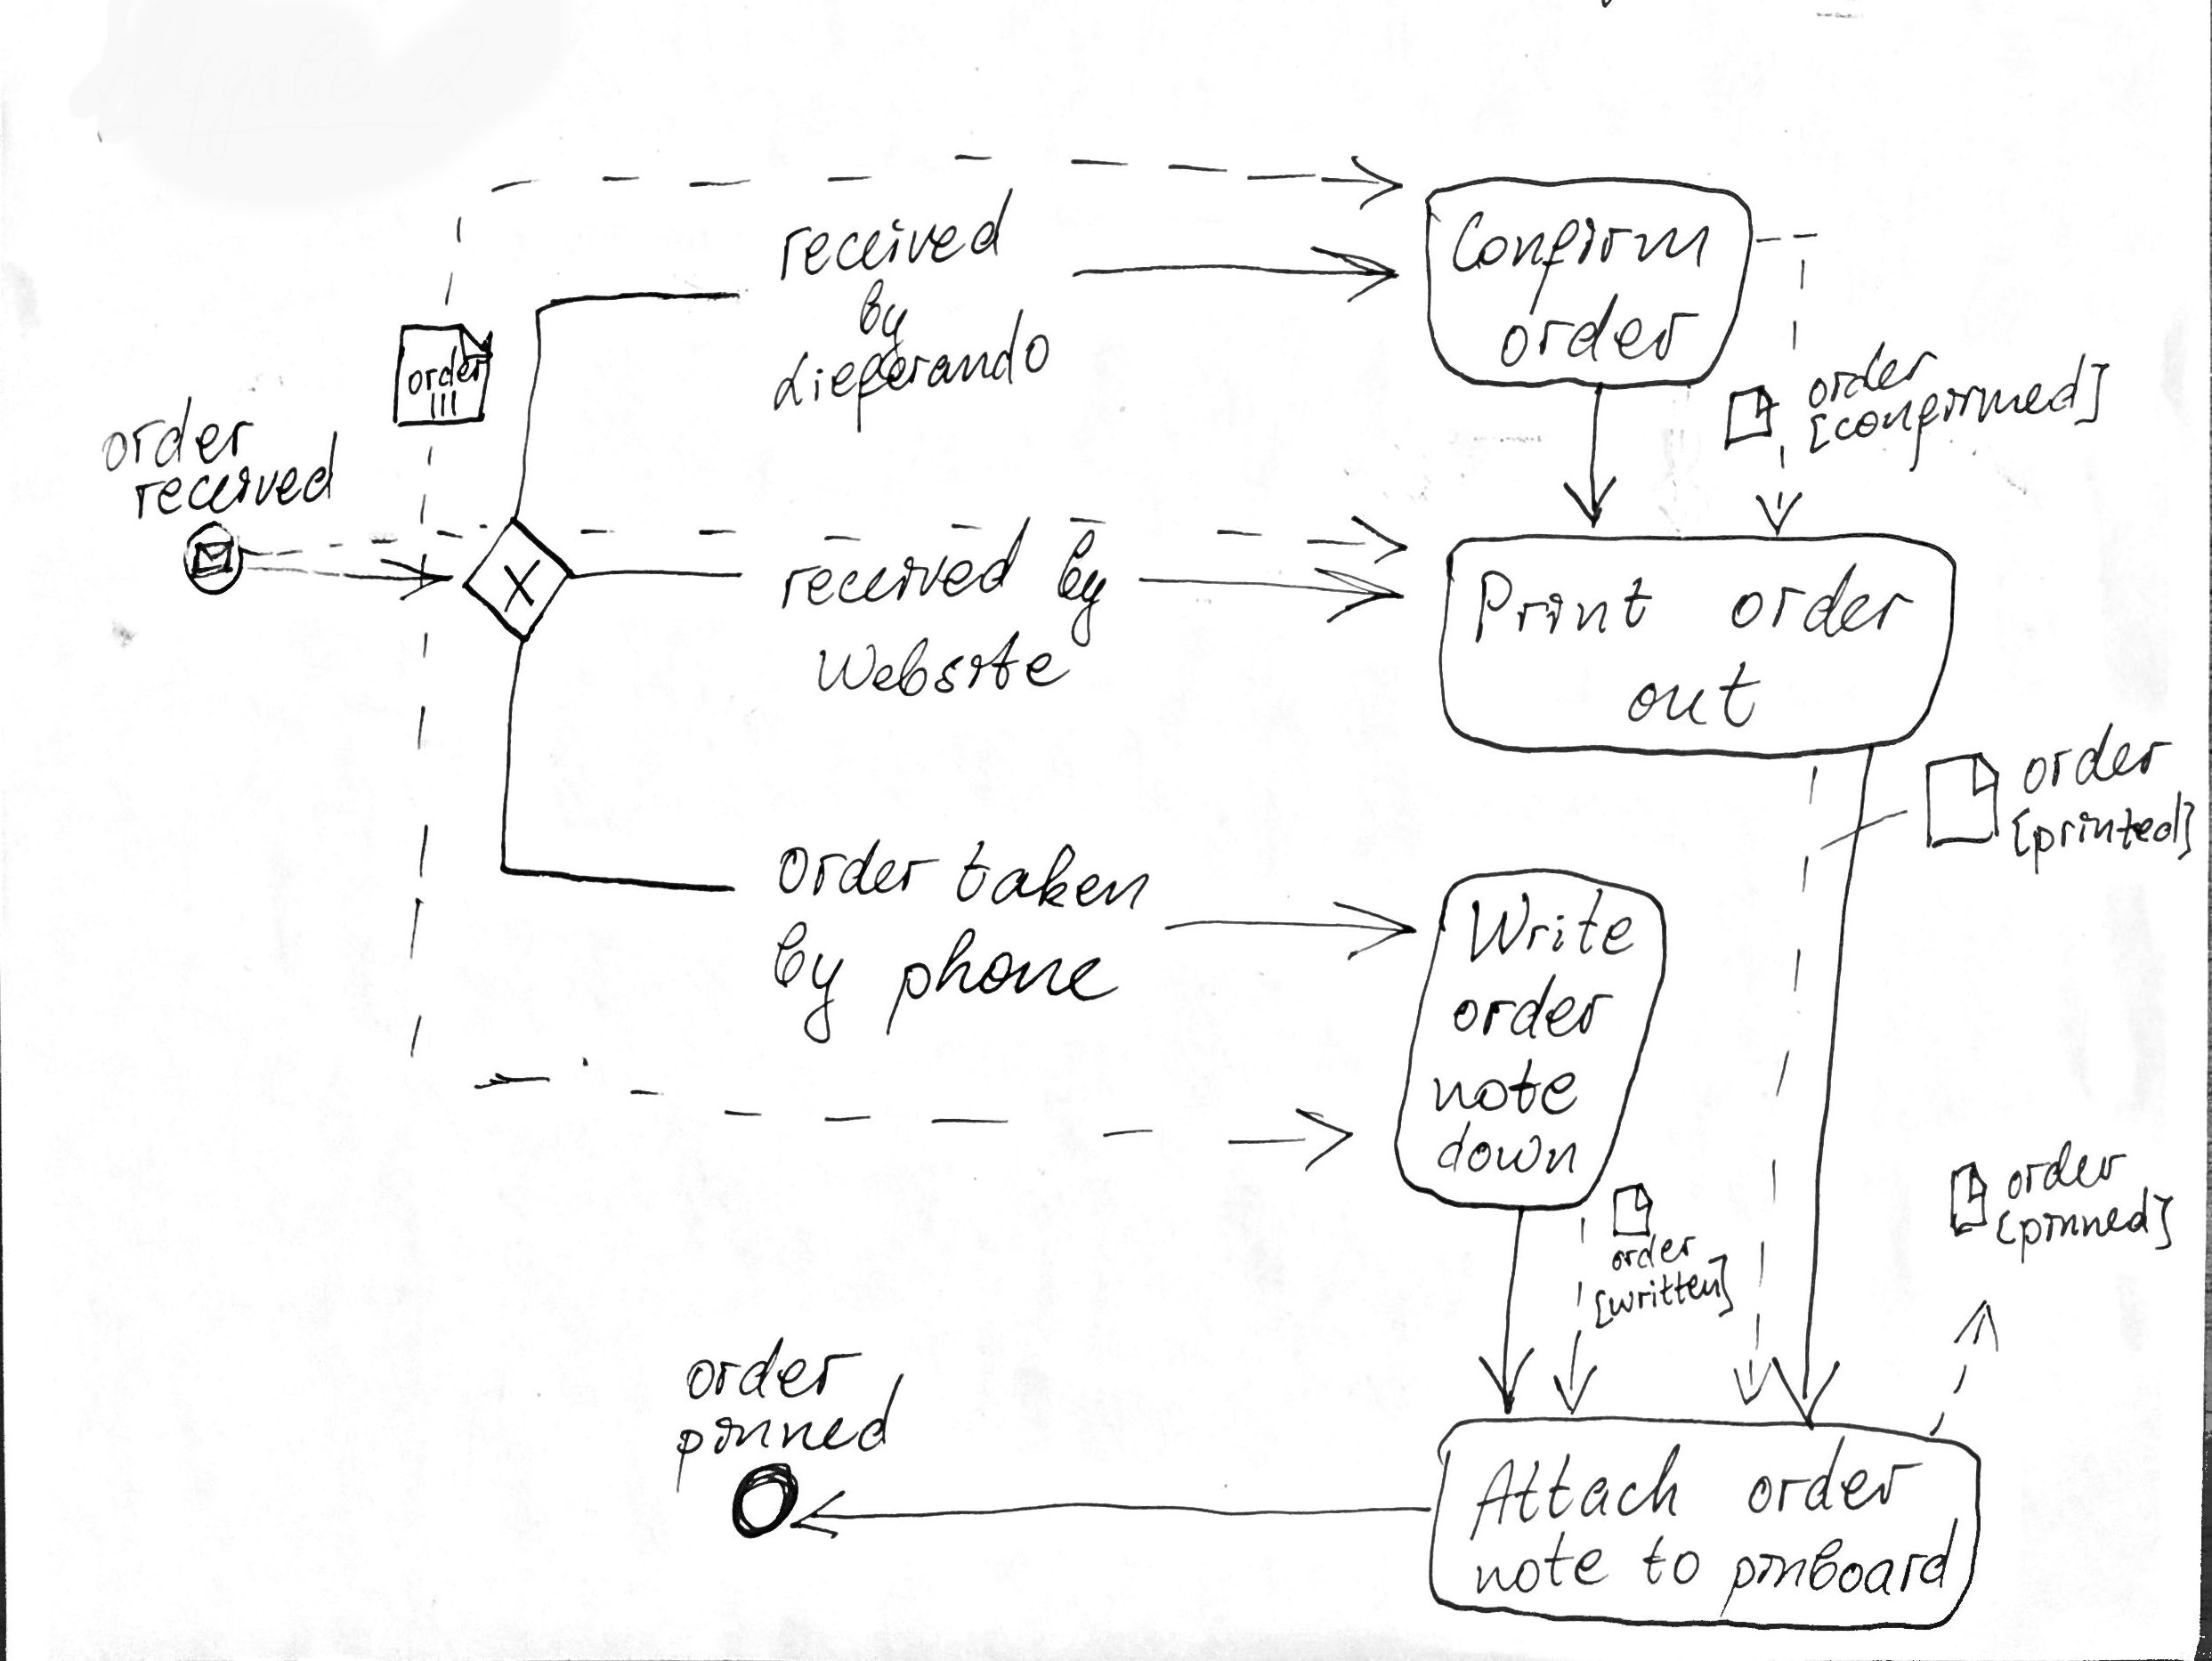 received
by
Lieferando
Confirm
order
order
|||
order
[confirmed]
order
received
X
received by
Website
Print order
out
order
[printed]
order taken
by phone
Write
order
note
down
order
[written]
order
[pinned]
order
pinned
Attach order
note to pinboard